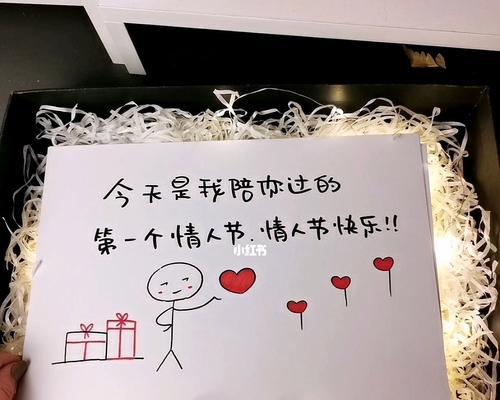 今天是我陪你过的
第一个情人节,情人节快乐!!
小红书